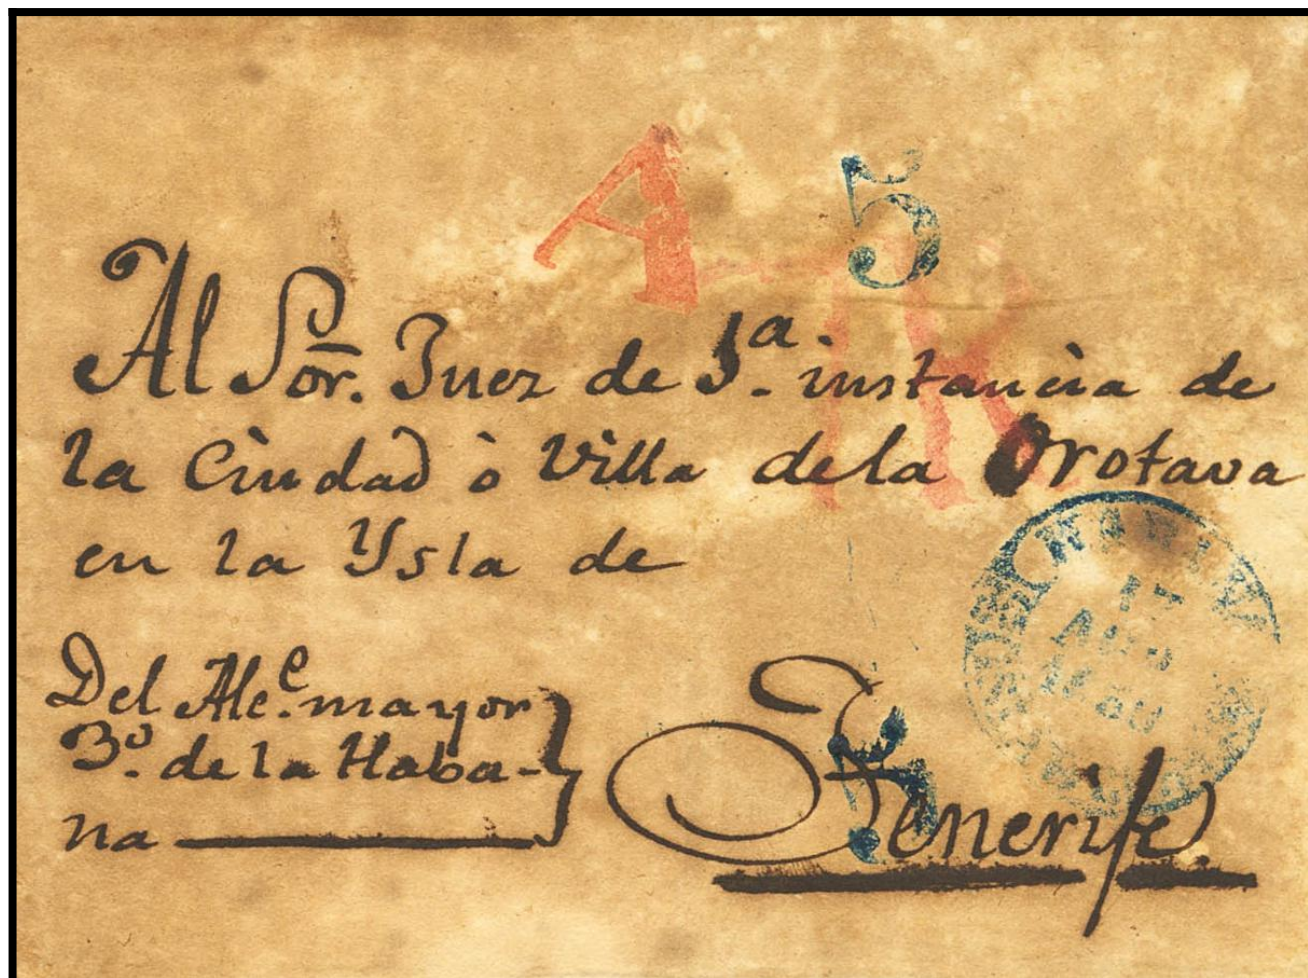 A
5
R
Al Sor. Juez de 1ª. instancia de
la Ciudad ò Villa de la Orotava
en la Ysla de
17
1860
Del Alc.e mayor
3º. de la Haba-
na
5
Tenerife.